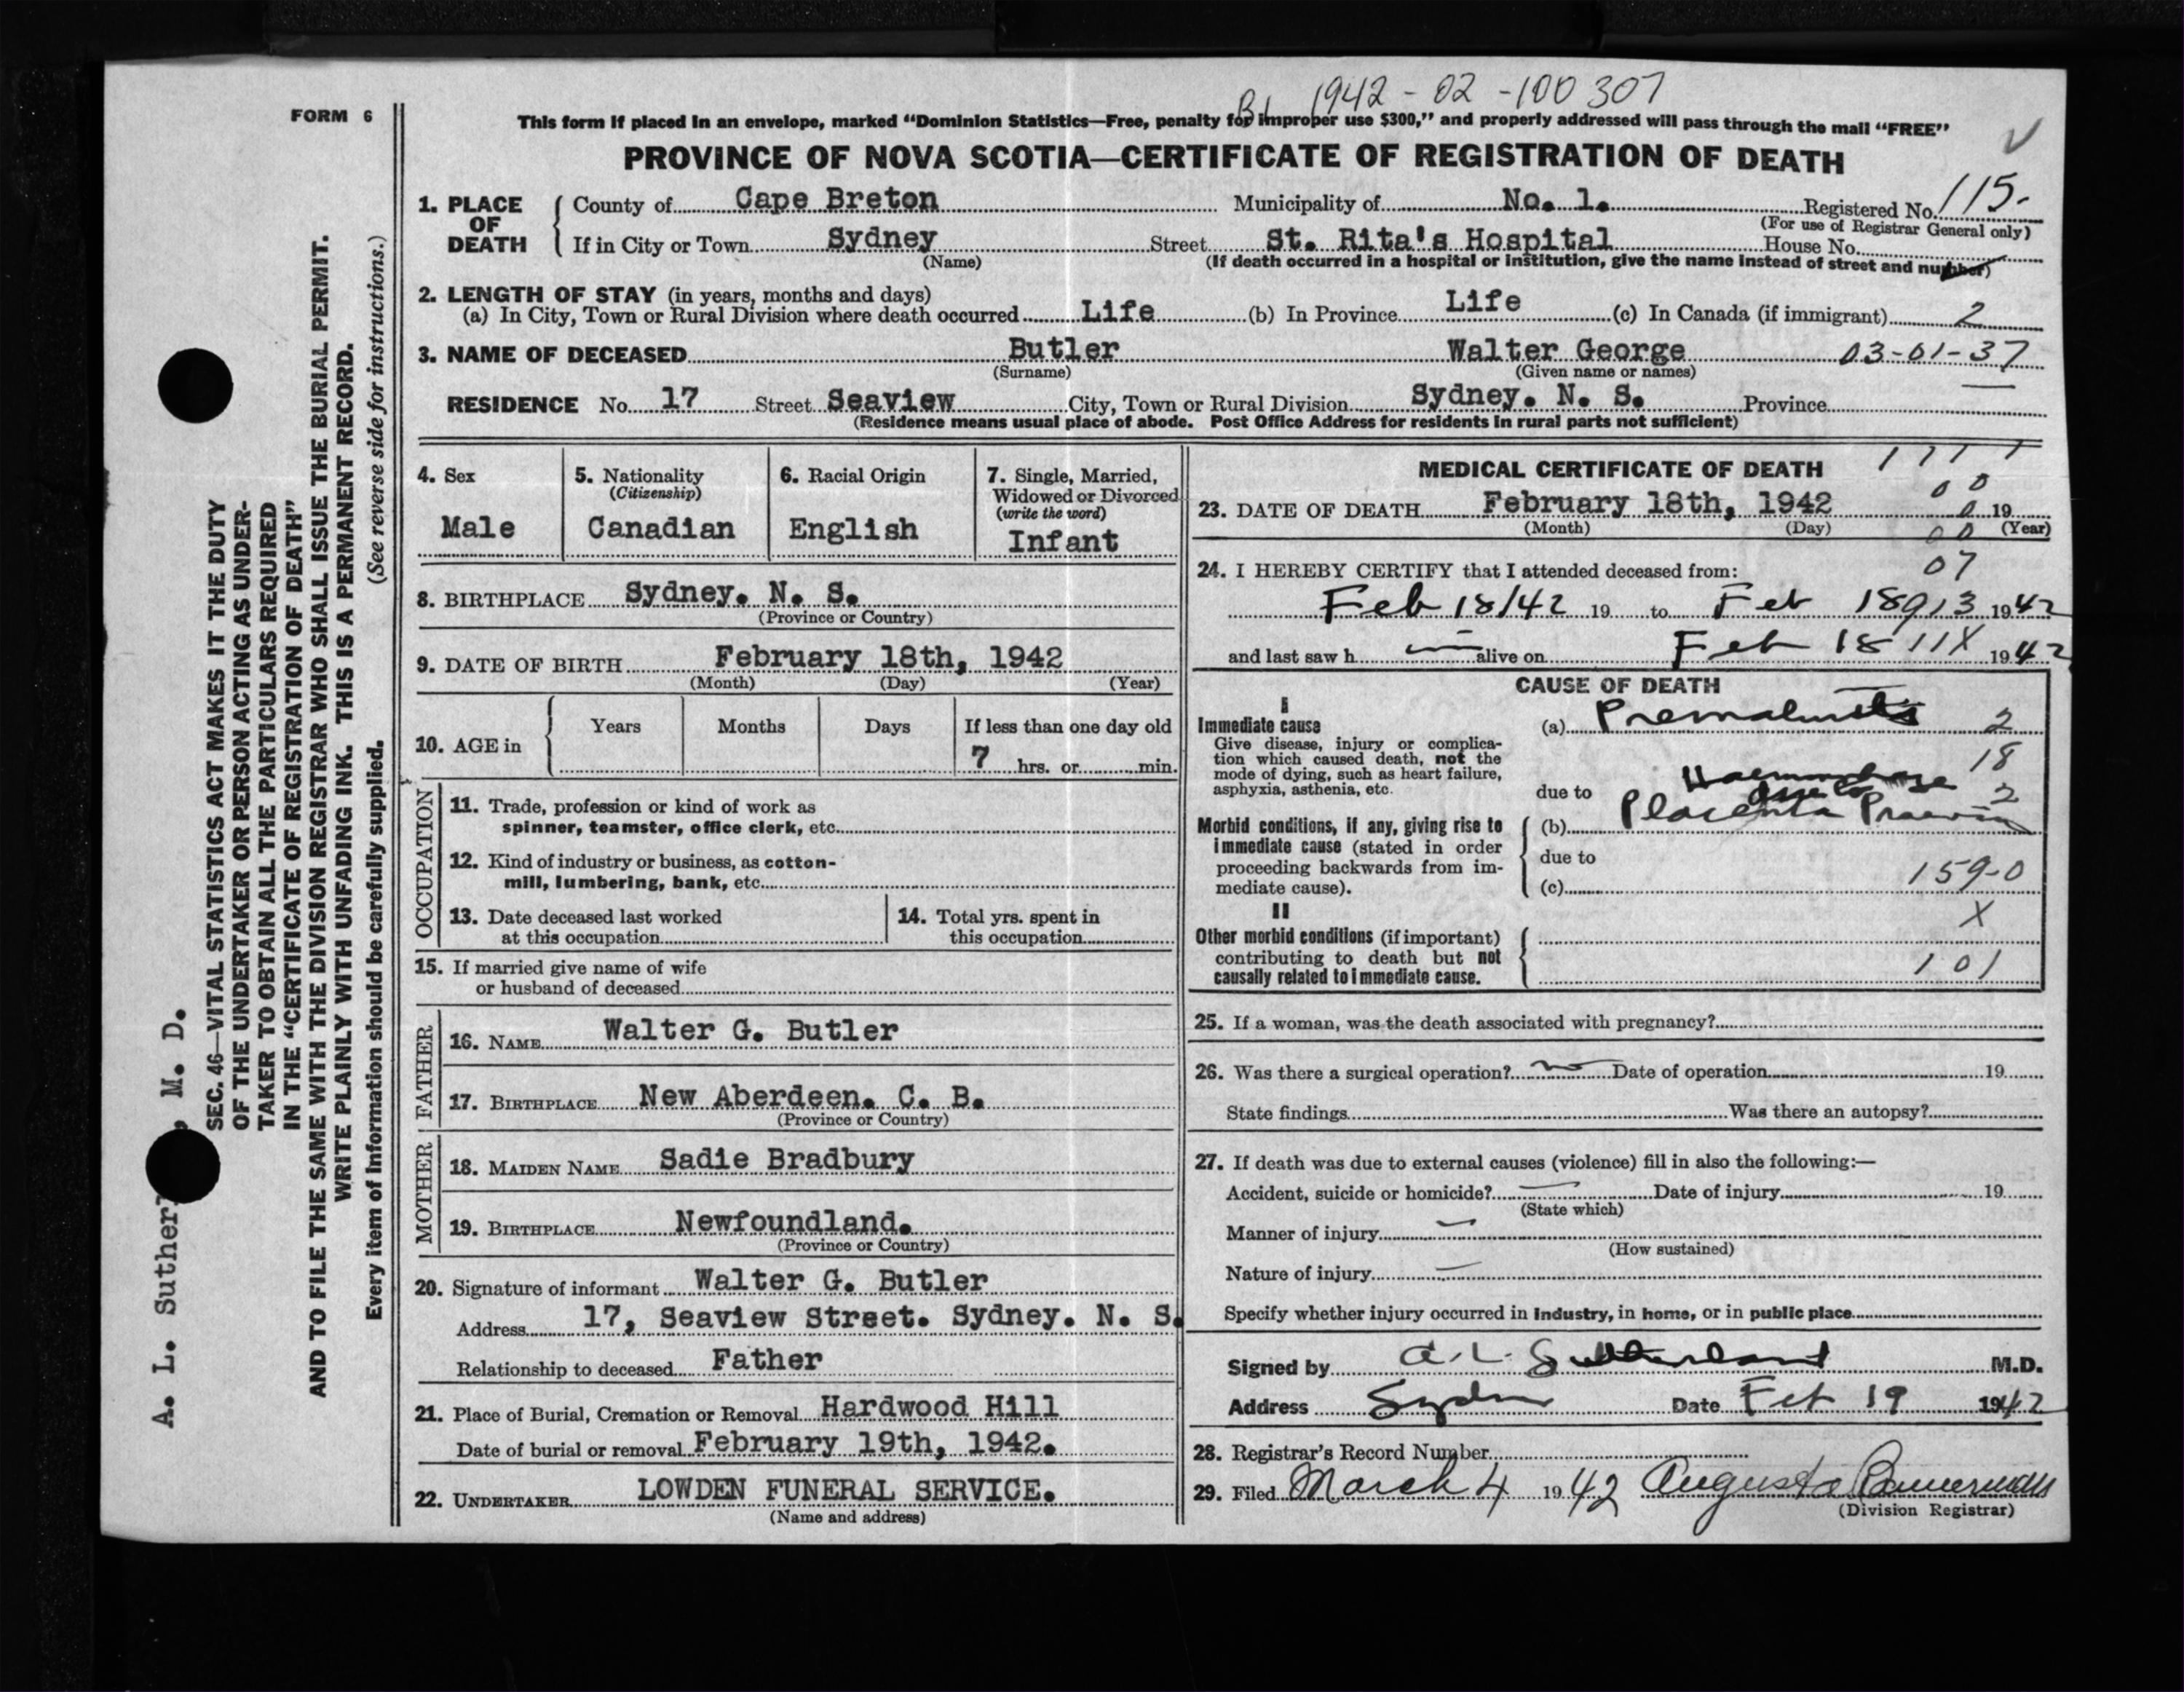 B1 1942-02-100307
FORM 6
This form if placed in an envelope, marked "Dominion Statistics—Free, penalty for improper use $300," and properly addressed will pass through the mail "FREE"
PROVINCE OF NOVA SCOTIA—CERTIFICATE OF REGISTRATION OF DEATH
1. PLACE OF DEATH
County of Cape Breton Municipality of No. 1. Registered No. 115-
(For use of Registrar General only)
If in City or Town Sydney Street St. Rita's Hospital House No.
(Name) (If death occurred in a hospital or institution, give the name instead of street and number)
2. LENGTH OF STAY (in years, months and days)
(a) In City, Town or Rural Division where death occurred Life (b) In Province Life (c) In Canada (if immigrant) 2
3. NAME OF DECEASED Butler Walter George 03-01-37
(Surname) (Given name or names)
RESIDENCE No. 17 Street Seaview City, Town or Rural Division Sydney. N. S. Province
(Residence means usual place of abode. Post Office Address for residents in rural parts not sufficient)
4. Sex
Male
5. Nationality
(Citizenship)
Canadian
6. Racial Origin
English
7. Single, Married,
Widowed or Divorced
(write the word)
Infant
8. BIRTHPLACE Sydney. N. S.
(Province or Country)
9. DATE OF BIRTH February 18th, 1942
(Month) (Day) (Year)
10. AGE in
Years Months Days If less than one day old
7 hrs. or min.
OCCUPATION
11. Trade, profession or kind of work as
spinner, teamster, office clerk, etc.
12. Kind of industry or business, as cotton-
mill, lumbering, bank, etc.
13. Date deceased last worked
at this occupation
14. Total yrs. spent in
this occupation
15. If married give name of wife
or husband of deceased
FATHER
16. NAME Walter G. Butler
17. BIRTHPLACE New Aberdeen. C. B.
(Province or Country)
MOTHER
18. MAIDEN NAME Sadie Bradbury
19. BIRTHPLACE Newfoundland.
(Province or Country)
20. Signature of informant Walter G. Butler
Address 17, Seaview Street. Sydney. N. S.
Relationship to deceased Father
21. Place of Burial, Cremation or Removal Hardwood Hill
Date of burial or removal February 19th, 1942.
22. UNDERTAKER LOWDEN FUNERAL SERVICE.
(Name and address)
MEDICAL CERTIFICATE OF DEATH
23. DATE OF DEATH February 18th, 1942 19
(Month) (Day) (Year)
07
24. I HEREBY CERTIFY that I attended deceased from:
Feb 18/42 19 to Feb 18 913 1942
and last saw h alive on Feb 18 11X 1942
CAUSE OF DEATH
I
Immediate cause
Give disease, injury or complica-
tion which caused death, not the
mode of dying, such as heart failure,
asphyxia, asthenia, etc.
(a) 2
18
due to Haemorrhage
due to 2
Morbid conditions, if any, giving rise to
immediate cause (stated in order
proceeding backwards from im-
mediate cause).
(b) Placenta Praevia
due to
(c) 159-0
II
X
Other morbid conditions (if important)
contributing to death but not
causally related to immediate cause.
101
25. If a woman, was the death associated with pregnancy?
26. Was there a surgical operation? no Date of operation 19
State findings Was there an autopsy?
27. If death was due to external causes (violence) fill in also the following:—
Accident, suicide or homicide? Date of injury 19
(State which)
Manner of injury
(How sustained)
Nature of injury
Specify whether injury occurred in industry, in home, or in public place
Signed by A. L. Sutherland M.D.
Address Sydney Date Feb 19 1942
28. Registrar's Record Number
29. Filed March 4 1942 Augusta
(Division Registrar)
SEC. 46—VITAL STATISTICS ACT MAKES IT THE DUTY
OF THE UNDERTAKER OR PERSON ACTING AS UNDER-
TAKER TO OBTAIN ALL THE PARTICULARS REQUIRED
IN THE "CERTIFICATE OF REGISTRATION OF DEATH"
AND TO FILE THE SAME WITH THE DIVISION REGISTRAR WHO SHALL ISSUE THE BURIAL PERMIT.
WRITE PLAINLY WITH UNFADING INK. THIS IS A PERMANENT RECORD.
Every item of information should be carefully supplied. (See reverse side for instructions.)
A. L. Suther , M. D.